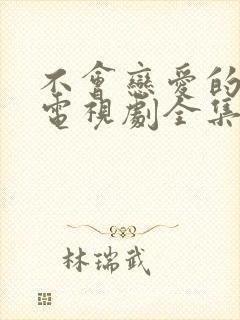 不會戀愛的
電視劇全集
林瑞武